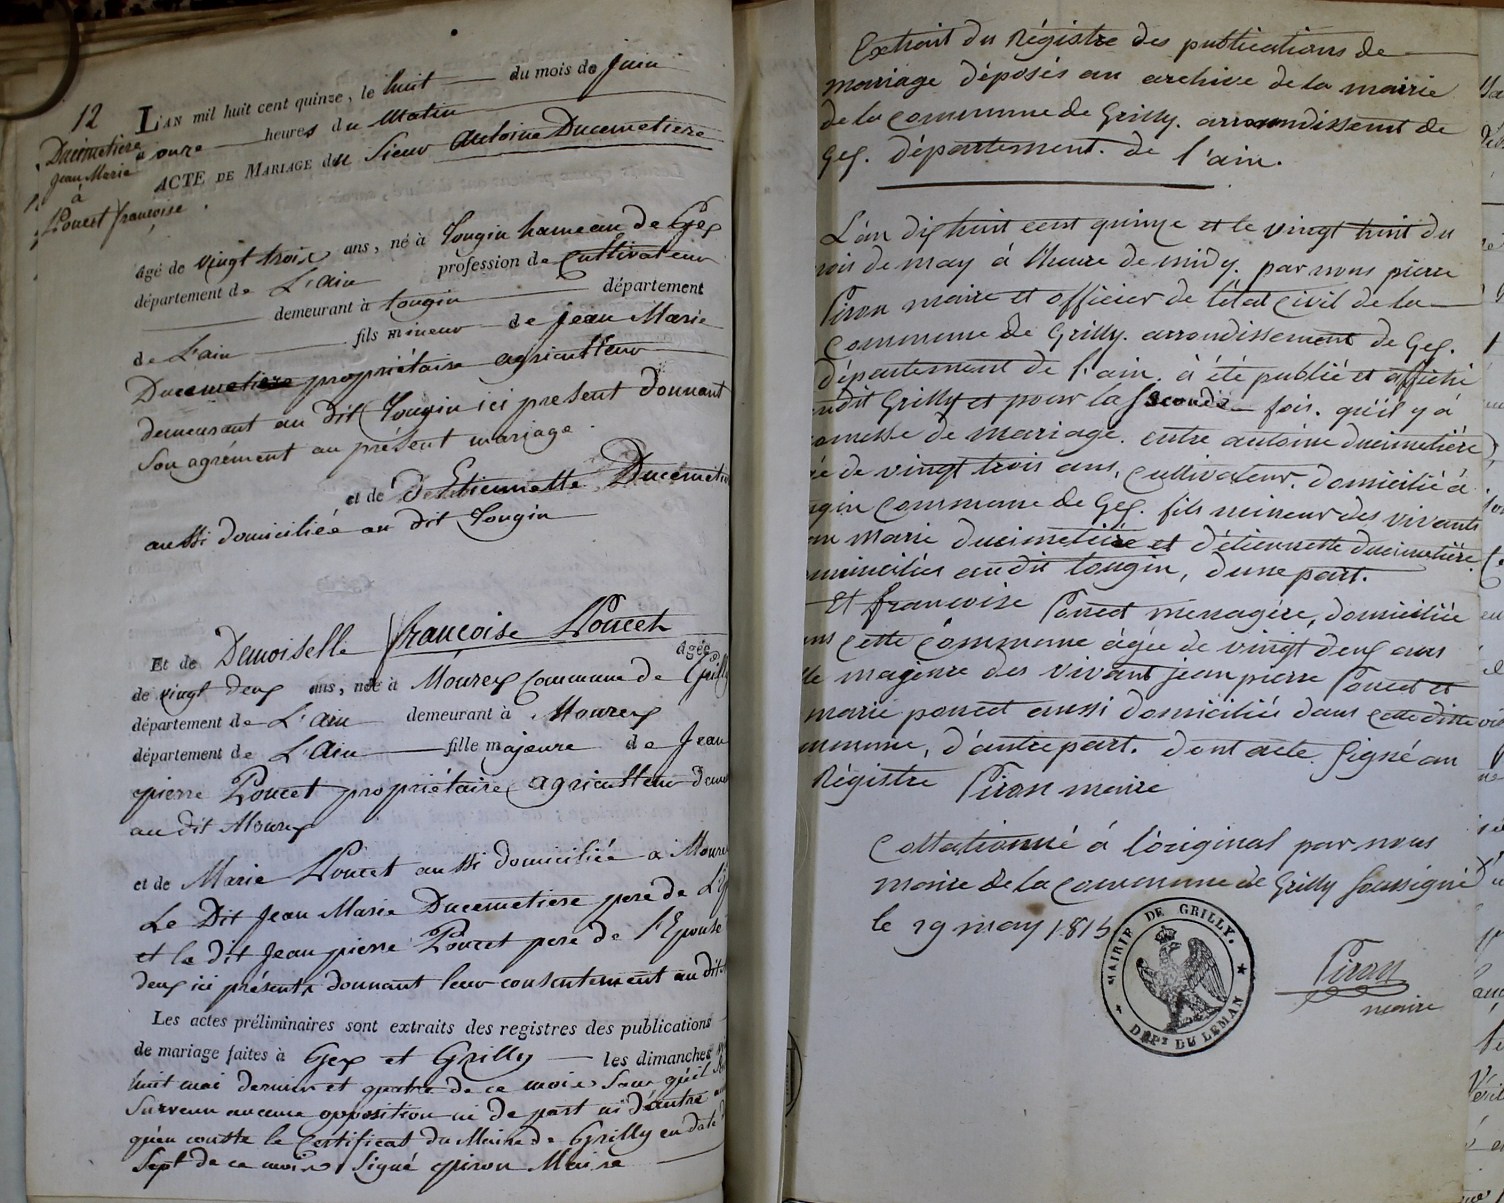 12
Ducimetiere
Jean Marie
à
Poncet françoise
L'AN mil huit cent quinze, le huit du mois de Juin
à onze heures du Matin
ACTE DE MARIAGE du Sieur Antoine Ducemetiere
âgé de vingt trois ans, né à Tougin hameau de Gex
département de L'Ain profession de Cultivateur
demeurant à tougin département
de L'ain fils mineur de Jean Marie
Ducemetiere propriétaire agriculteur
demeurant au dit Tougin ici present donnant
son agrément au présent mariage.
et de d'Etiennette Ducemeti
aussi domiciliée au dit Tougin
Et de Demoiselle françoise Poncet
âgée
de vingt deux ans, née à Mourex Commune de Grilly
département de L'Ain demeurant à Mourex
département de L'Ain fille majeure de Jean
pierre Poncet propriétaire agriculteur
au dit Mourex
et de Marie Poncet aussi domiciliée a Moure
Le Dit Jean Marie Ducemetiere pere de
et le dit Jean pierre Poncet pere de l'Epouse
deux ici présents donnant leur consentement au dit
Les actes préliminaires sont extraits des registres des publications
de mariage faites à Gex et Grilly les dimanches
huit mai dernier et quatre de ce mois sans qu'il
Survenu aucune opposition ni de part ni d'autre
qu'en conste le Certificat du Maire de Grilly en date
Sept de ce mois Signé piron Maire
Extrait du Régistre des publications de
mariage déposés au archive de la mairie
de la commune de Grilly. arrondissement de
Gex. département. de l'ain.
L'an dix huit cent quinze et le vingt huit du
mois de may à l'heure de midy. par nous pierre
Piron maire et officier de l'état civil de la
Commune de Grilly. arrondissement de Gex.
département de l'ain. à été publié et affiché
audit Grilly et pour la seconde fois. qu'il y à
omesse de mariage. entre antoine ducimetière
ée de vingt trois ans, Cultivateur. domicilié à
ugin Commune de Gex. fils mineur des vivants
an marie ducimetière et d'étiennette ducimetière
omiciliés audit tougin, d'une part.
Et françoise Poncet menagère, domiciliée
ns cette Commune âgée de vingt deux ans
le majeure des vivant jean pierre Poncet et
marie poncet aussi domiciliés dans cette ditte
mmune, d'autre part. dont acte. signé au
Régistre Piron maire
Collationné à l'original par nous
maire de la commune de Grilly soussigné
le 29 may 1815
MAIRIE DE GRILLY.
DÉPT DU LEMAN
Piron
maire